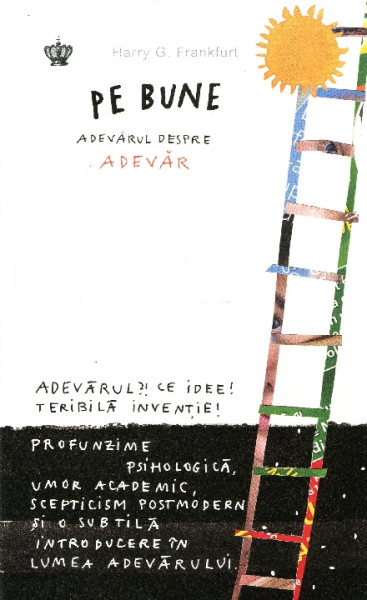 Harry G. Frankfurt
PE BUNE
ADEVĂRUL DESPRE
ADEVĂR
ADEVĂRUL?! CE IDEE!
TERIBILĂ INVENȚIE!
PROFUNZIME
PSIHOLOGICĂ,
UMOR ACADEMIC,
SCEPTICISM POSTMODERN
ȘI O SUBTILĂ
INTRODUCERE ÎN
LUMEA ADEVĂRULUI.